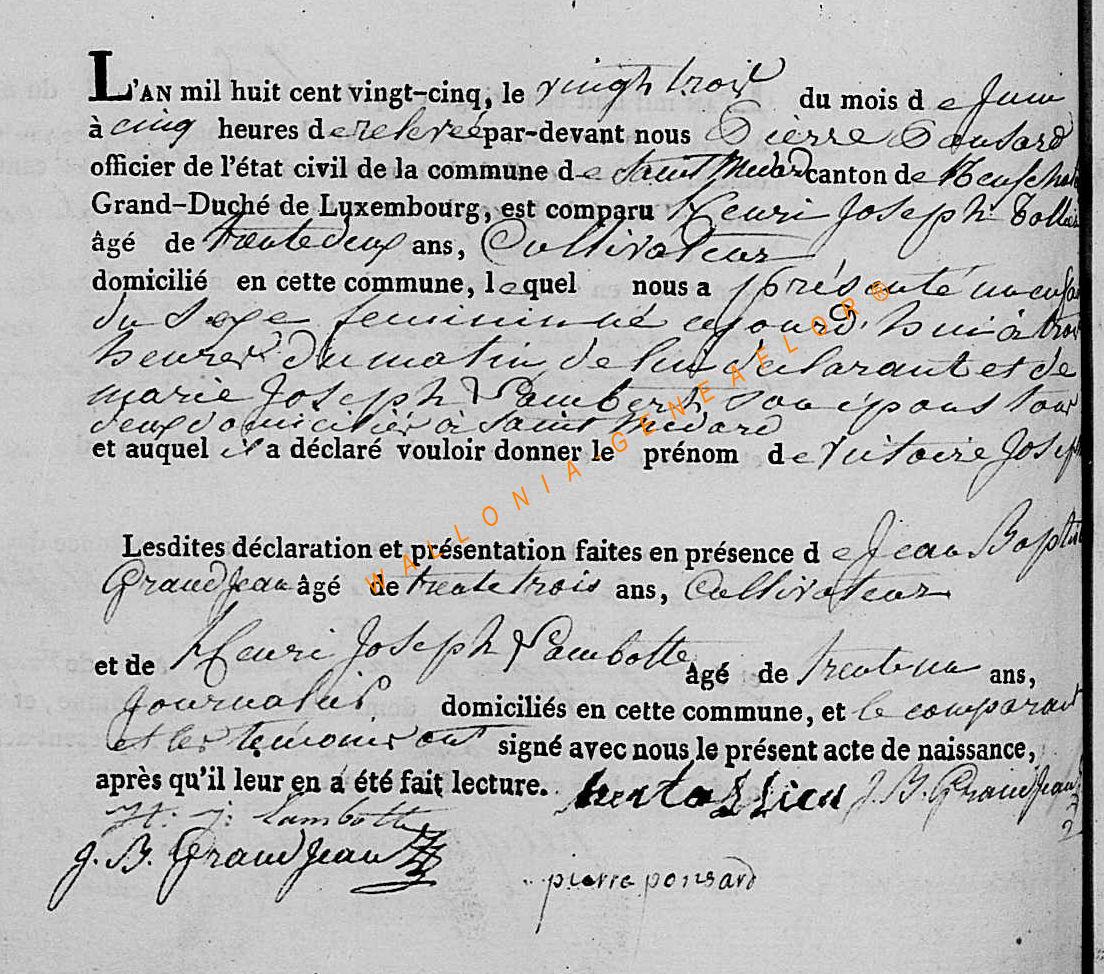 L'AN mil huit cent vingt-cinq, le vingh trois du mois de Juin
à cinq heures de relevée par-devant nous Pierre Ponsard
officier de l'état civil de la commune de Saint Medard canton de Neufchat
Grand-Duché de Luxembourg, est comparu Henri Joseph
âgé de trente deux ans, Cultivateur
domicilié en cette commune, lequel nous a présenté un enfan
du Sexe feminin né aujourd'hui à troi
heures du matin de lui declarant et de
marie Joseph Lambert son épouse tous
deux domiciliés à Saint Medard
et auquel il a déclaré vouloir donner le prénom de Victoire Joseph
Lesdites déclaration et présentation faites en présence de Jean Baptis
GrandJean âgé de trente trois ans, Cultivateur
et de Henri Joseph Lambotte âgé de trente un ans,
Journalier domiciliés en cette commune, et le comparant
et les temoins ont signé avec nous le présent acte de naissance,
après qu'il leur en a été fait lecture. J. B. GrandJean
H. J. Lambotte
J. B. GrandJean
pierre ponsard
WALLONIA-GENEAFLOR®